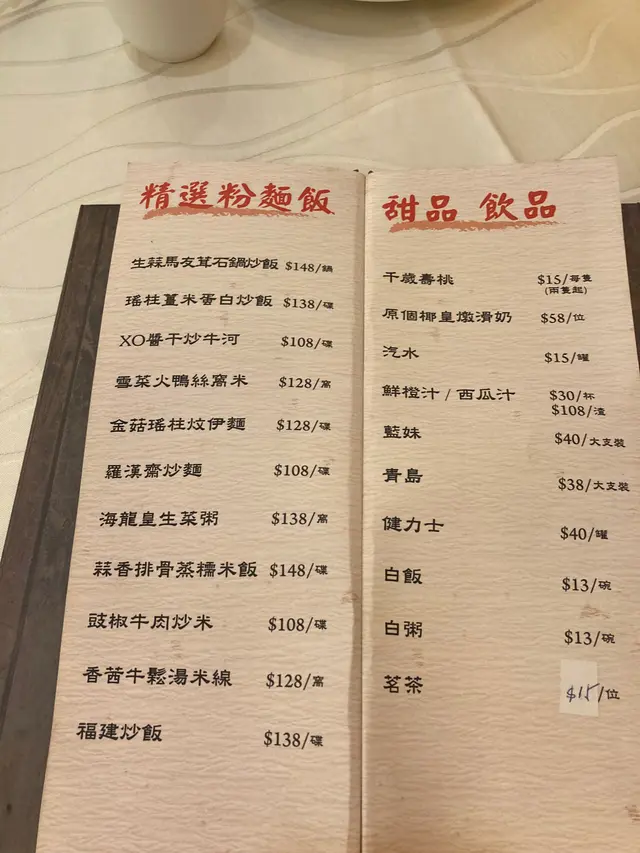 精選粉麵飯
生蒜馬友茸石鍋炒飯 $148/鍋
瑤柱薑米蛋白炒飯 $138/碟
XO醬干炒牛河 $108/碟
雪菜火鴨絲窩米 $128/窩
金菇瑤柱炆伊麵 $128/碟
羅漢齋炒麵 $108/碟
海龍皇生菜粥 $138/窩
蒜香排骨蒸糯米飯 $148/碟
豉椒牛肉炒米 $108/碟
香茜牛鬆湯米線 $128/窩
福建炒飯 $138/碟
甜品 飲品
千歲壽桃 $15/每隻
(兩隻起)
原個椰皇燉滑奶 $58/位
汽水 $15/罐
鮮橙汁 / 西瓜汁 $30/杯
$108/渣
藍妹 $40/大支裝
青島 $38/大支裝
健力士 $40/罐
白飯 $13/碗
白粥 $13/碗
茗茶 $15/位